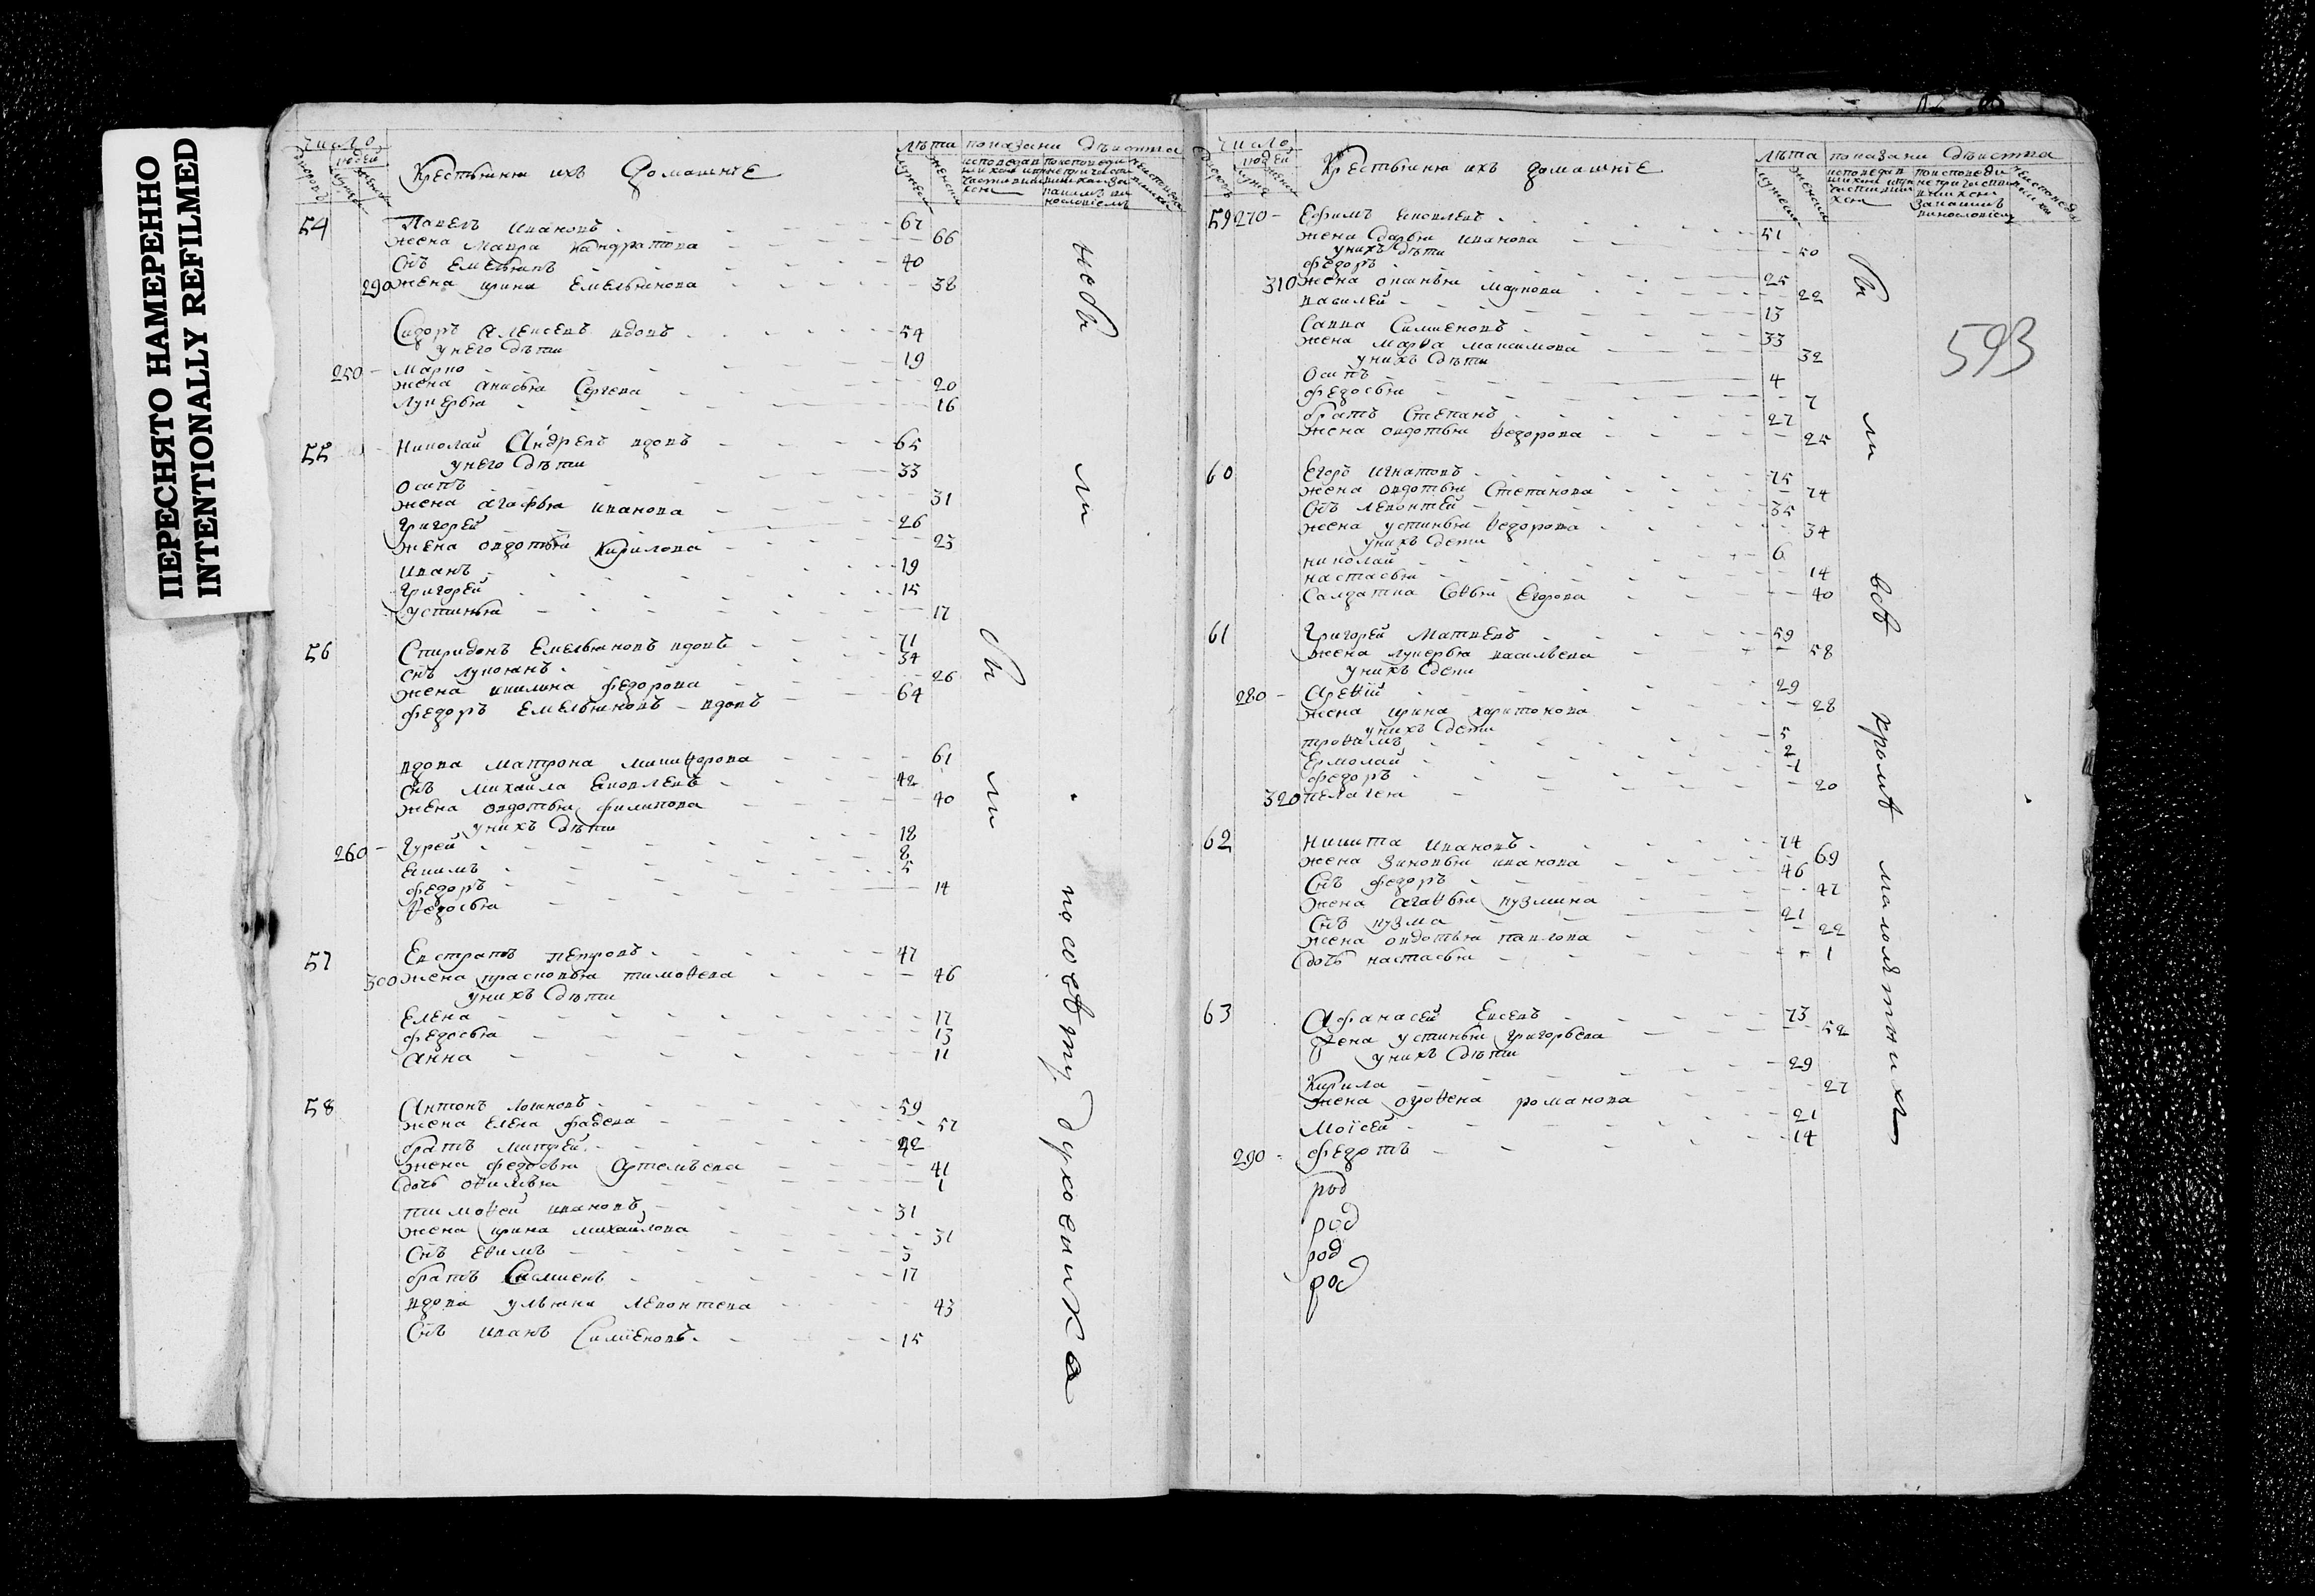 ПЕРЕСНЯТО НАМЕРЕННО
INTENTIONALLY REFILMED
число
людей
Крестьяня ихъ домашнїе
лѣта показани дѣиства
54 Павелъ Ивановъ 67
жена Мавра Кандратова 66
Снъ Емельянъ 40
290 жена Ирина Емельянова 38
Сидоръ Алексеевъ вдовъ 54
у него дѣти
250 Марко 19
жена Анисья Сергеева 20
Лукерья 16
55 Николай Андреевъ вдовъ 65
у него дѣти
Осипъ 33
жена Агафья Иванова 31
Григорей 26
жена Овдотья Кирилова 23
Иванъ 19
Григорей 15
устинья 17
56 Спиридонъ Емельяновъ вдовъ 71
снъ Лукоянъ 34
жена Акилина Федорова 26
Федоръ Емельяновъ вдовъ 64
вдова Матрона Никиѳорова 61
снъ Михаила Яковлевъ 42
жена Овдотья Филипова 40
у нихъ дѣти
260 Гурей 18
Якимъ 8
Федоръ 5
Ѳедосья 14
57 Евстратъ Петровъ 47
300 жена Прасковья Тимоѳеева 46
у нихъ дѣти
Елена 17
Федосья 13
Анна 11
58 Антонъ 59
жена Елена Фадеева 57
братъ 42
жена Федосья Артемьева 41
дочь Оѳимья 1
Тимоѳей Ивановъ 31
жена Ирина Михайлова 31
Снъ Еѳимъ 3
братъ Симиенъ 17
вдова Ульяна Левонтеева 43
Снъ Иванъ Симиеновъ 15
всѣ
бы
ли
бы
ли
по совѣту духовника
число
людей
Крестьяня ихъ домашнїе
лѣта показани дѣиства
593
59 270 Ефимъ Яковлевъ 51
жена Дарья Иванова 50
у нихъ дѣти
Федоръ 25
310 жена Оксинья Маркова 22
василей 13
Савва Симиеновъ 33
жена Марѳа Максимова 32
у нихъ дѣти
Осипъ 4
Федосья 7
братъ Степанъ 27
жена Овдотья Ѳедорова 25
60 Егоръ Игнатовъ 75
жена Овдотья Степанова 74
Снъ Левонтей 35
жена устинья Ѳедорова 34
у нихъ дети
николай 6
настасья 14
Салдатка Соѳья Егорова 40
61 Григорей Матвеевъ 59
жена Лукерья васильева 58
у нихъ дети
280 Ареѳїй 29
жена Ирина Харитонова 28
у нихъ дети
Троѳимъ 5
Ермолай 2
Федоръ 1
320 Пелагея 20
62 Никита Ивановъ 74
жена Зиновья Иванова 69
Снъ Федоръ 46
жена Агаѳья Кузмина 47
Снъ Кузма 21
жена Овдотья Павлова 22
дочь настасья 1
63 Афанасей Евсеевъ 73
жена Устинья Григорьева 52
у нихъ дѣти
Кирила 29
жена Ороѳена Романова 27
Моїсей 21
290 Федотъ 14
род
род
род
род
бы
ли
всѣ
кромѣ
малолѣтнихъ